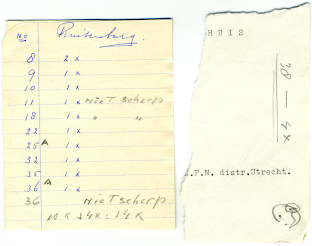 No Ruitenburg.
8 2 x
9 1 x
10 1 x
11 1 x NieT Scherp
18 1 x " "
22 1 x
25 A 1 x
32 1 x
35 1 x
36 A 1 x
36 NieT scherp
10 x
HUIS
38 — 4x
.P.N. distr.Utrecht.